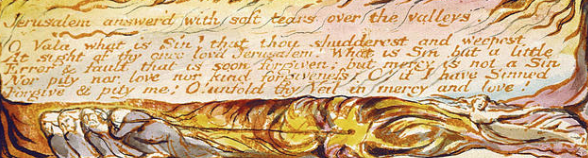 Jerusalem answerd with soft tears over the valleys
O Vala what is Sin? that thou shudderest and weepest
At sight of thy once lovd Jerusalem! What is Sin but a little
Error & fault that is soon forgiven; but mercy is not a Sin
Nor pity nor love nor kind forgiveness! O! if I have Sinned
Forgive & pity me! O! unfold thy Veil in mercy and love!